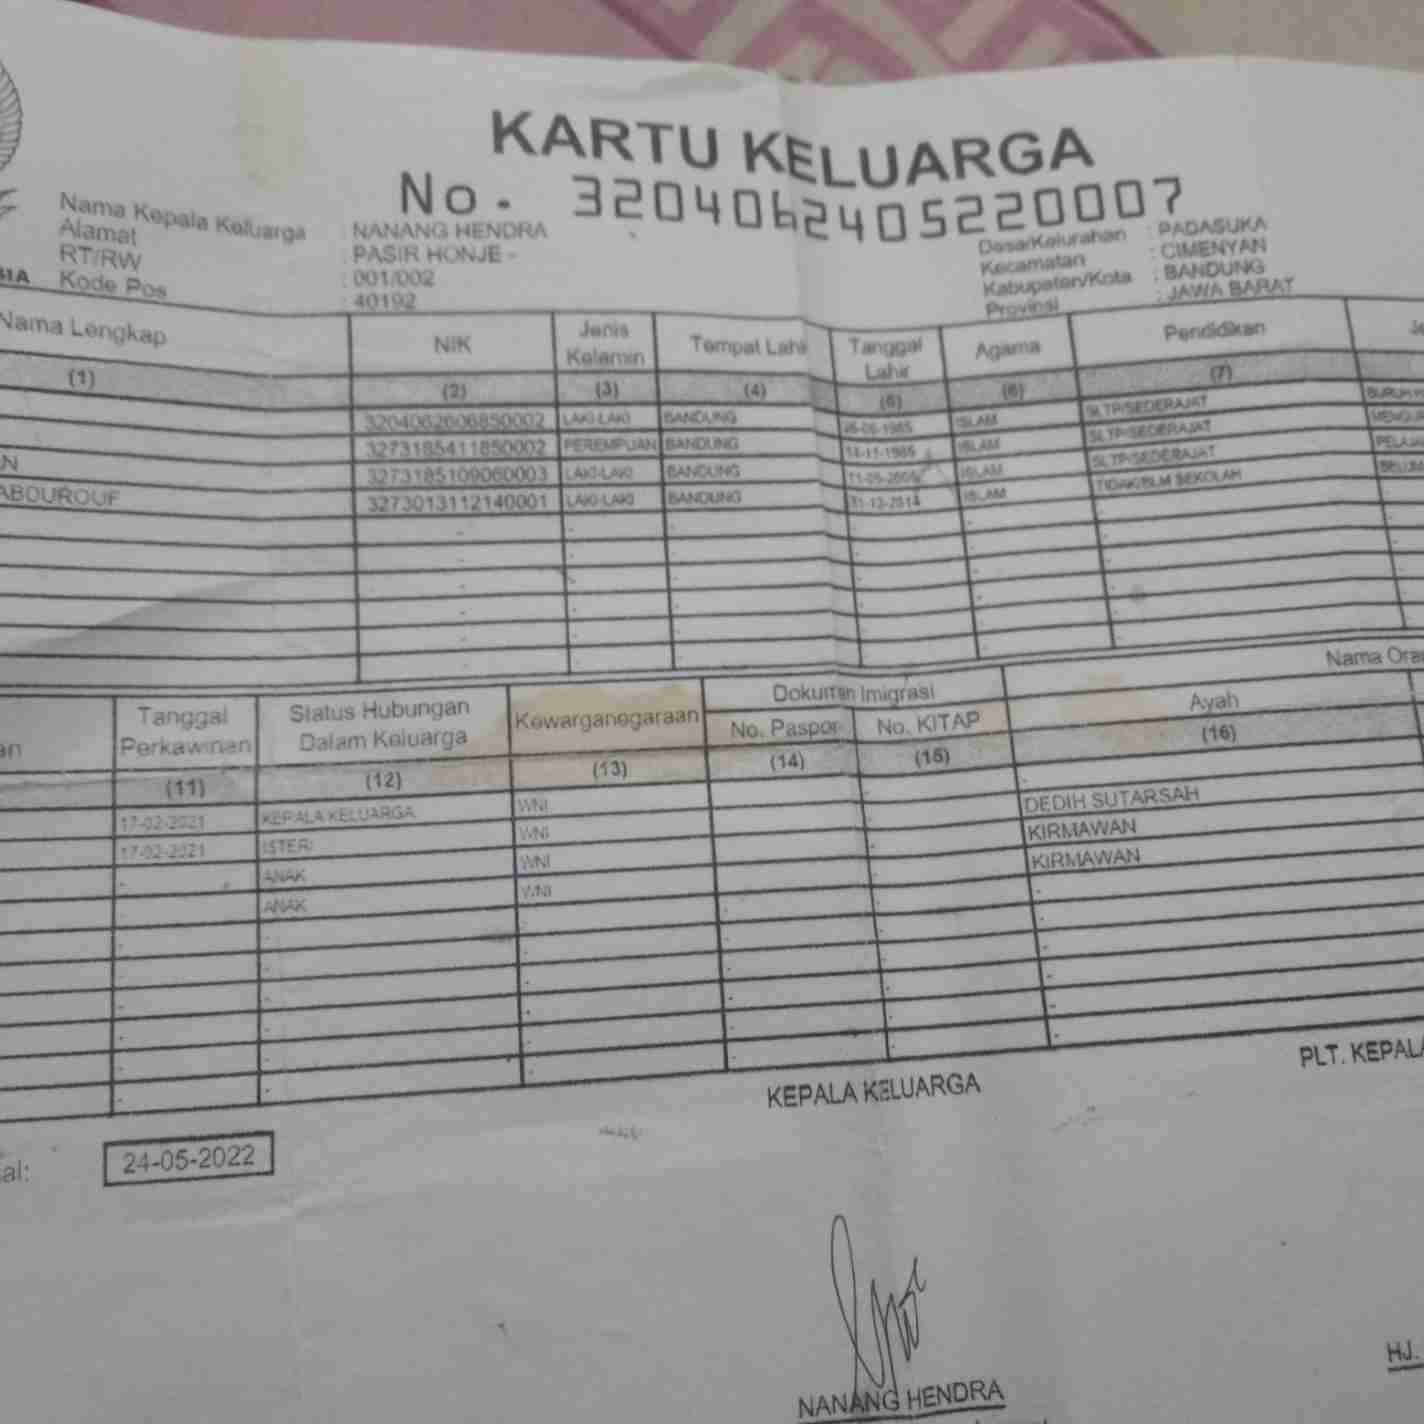 KARTU KELUARGA
No. 3204062405220007
Nama Kepala Keluarga : NANANG HENDRA
Alamat : PASIR HONJE -
RT/RW : 001/002
Kode Pos : 40192
Desa/Kelurahan : PADASUKA
Kecamatan : CIMENYAN
Kabupaten/Kota : BANDUNG
Provinsi : JAWA BARAT
Nama Lengkap NIK Jenis Kelamin Tempat Lahir Tanggal Lahir Agama Pendidikan
(1) (2) (3) (4) (5) (6) (7)
3204062606850002 LAKI-LAKI BANDUNG 26-06-1985 ISLAM SLTP/SEDERAJAT
3273185411850002 PEREMPUAN BANDUNG 14-11-1985 ISLAM SLTP/SEDERAJAT
3273185109060003 LAKI-LAKI BANDUNG ISLAM SLTP/SEDERAJAT
ABOUROUF 3273013112140001 LAKI-LAKI BANDUNG 31-12-2014 ISLAM TIDAK/BLM SEKOLAH
Tanggal Perkawinan Status Hubungan Dalam Keluarga Kewarganegaraan Dokumen Imigrasi
No. Paspor No. KITAP Ayah
(11) (12) (13) (14) (15) (16)
17-02-2021 KEPALA KELUARGA WNI DEDIH SUTARSAH
17-02-2021 ISTERI WNI KIRMAWAN
- ANAK WNI KIRMAWAN
ANAK WNI -
KEPALA KELUARGA
PLT. KEPALA
24-05-2022
NANANG HENDRA
HJ.